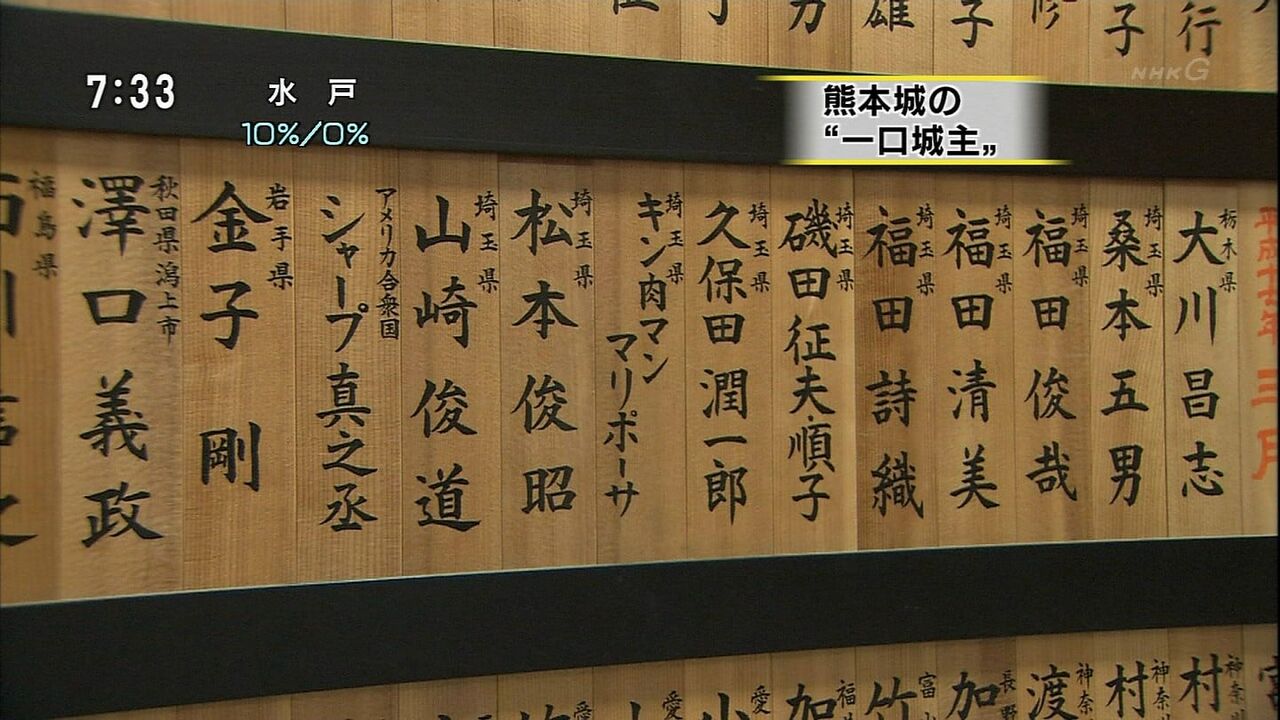 行
子
修
子
雄
7:33
水戸
10%/0%
NHK G
熊本城の
“一口城主„
三月
栃木県
大川昌志
埼玉県
桑本五男
埼玉県
福田俊哉
埼玉県
福田清美
埼玉県
福田詩織
埼玉県
磯田征夫・順子
埼玉県
久保田潤一郎
埼玉県
キン肉マン
マリポーサ
埼玉県
松本俊昭
埼玉県
山崎俊道
アメリカ合衆国
シャープ真之丞
岩手県
金子剛
秋田県潟上市
澤口義政
福島県
神奈
村
神奈
村
神奈
渡
長野
加
富
竹
福
加
愛
愛